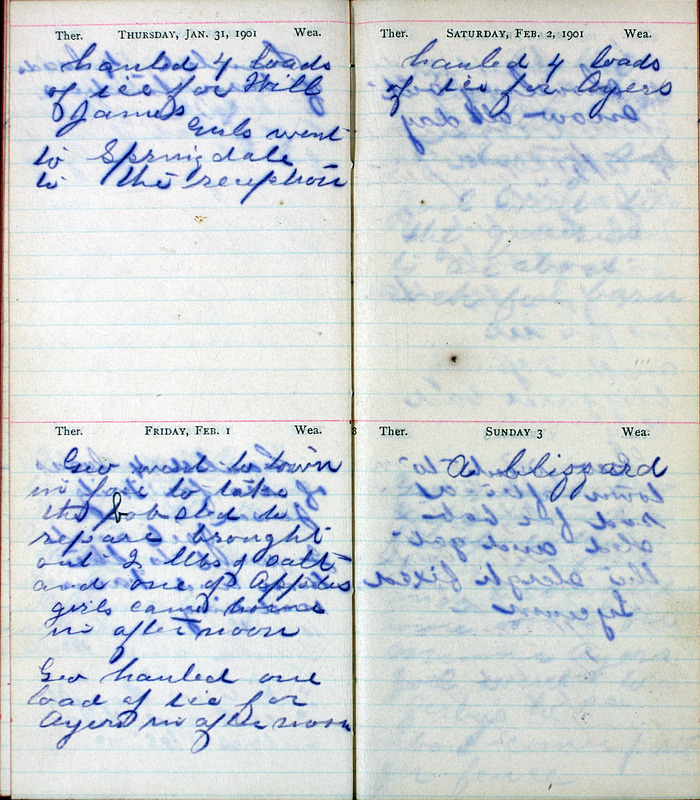 Ther. THURSDAY, JAN. 31, 1901 Wea.
hauled 4 loads
of ice for Will
James
Girls went
to Springdale
to the reception
Ther. FRIDAY, FEB. 1 Wea.
Geo went to town
in fore to take
the bob sled to
repare brought
out 2 bbls of salt
and one of Apples
girls came home
in after noon
Geo hauled one
load of ice for
Ayers in after noon
Ther. SATURDAY, FEB. 2, 1901 Wea.
hauled 4 loads
of ice for Ayers
3 Ther. SUNDAY 3 Wea.
A blizzard